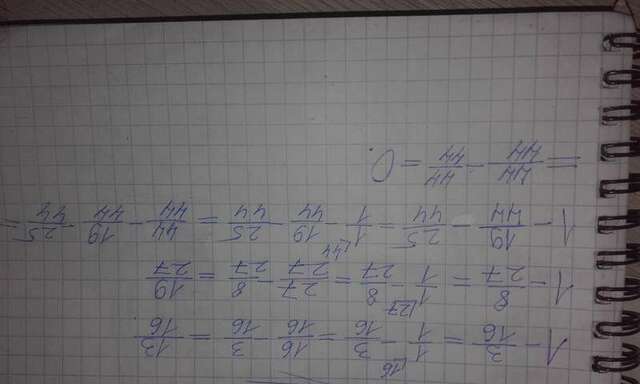 1 - 3/16 = 1/1 ⌊16 - 3/16 = 16/16 - 3/16 = 13/16.
1 - 8/27 = 1/1 ⌊27 - 8/27 = 27/27 - 8/27 = 19/27
1 - 19/44 - 25/44 = 1/1 ⌊44 - 19/44 - 25/44 = 44/44 - 19/44 - 25/44 =
= 44/44 - 44/44 = 0.